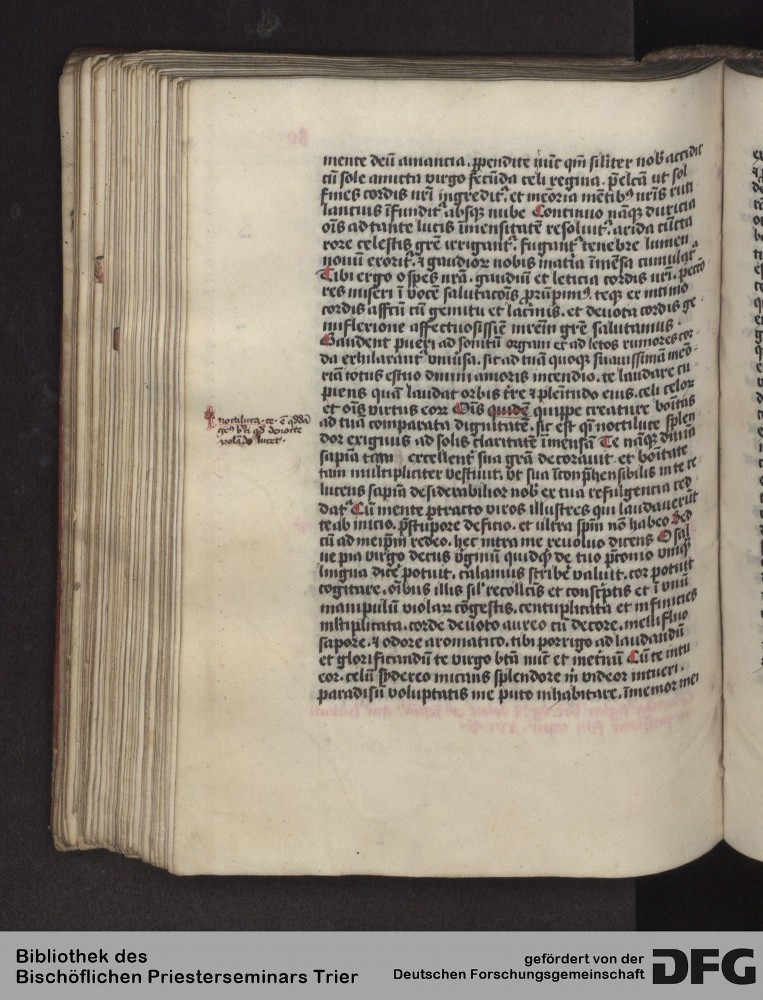 mente deū amancia. ꝑpendite nūc qm̄ siliter nob̄ accidit
cū sole amicta virgo fecūda celi regina. p̄elcā ut sol
fines cordis nr̄i ingredit᷑. et meōria mētib⁹ nr̄is ruti
lancius īfundit᷑ absqꝫ nube Continuo nāqꝫ duricia
oīs ad tante lucis īmensitatē resoluit᷑. arida cūcta
rore celestis grē irrigant᷑. fugant᷑ tenebre lumen
nouū exorit᷑. ⁊ gaudioꝝ nobis matīa īmēsa cumulat᷑
Tibi ergo o spes nrā. gaudiū et leticia cordis nr̄i. pecca
res miseri ī vocē salutacōis prūpim⁹. teqꝫ ex intimo
cordis affcū cū gemitu et lacrimis. et deuota cordis ge
nuflexione affectuosissīe mrēm grē salutamus.
Gaudent pueri ad sonitū organi et ad letos rumores cor
da exhilarāt᷑ vniūsa. sic ad tuā quoqꝫ suauissimā meō
riā totus estuo diuini amoris incendio. te laudare cu
piens quā laudat orbis tre ⁊ plēitudo eius. celi celoꝝ
et oīs virtus eoꝝ Oīs quidē quippe creature boītas
ad tuā comparata dignitatē. sic est qī noctiluce splen
dor exiguus ad solis claritatē īmensā Te nāqꝫ diuīa
sapīa tam excellent᷑ sua grā decorauit et boītate
tam multipliciter vestiuit. vt sua īconp̄hensibilis in te re
lucens sapīa desiderabilior nob̄ ex tua refulgencia red
dat᷑ Cū mente ptracto viros illustres qui laudauerūt
te ab inicio. p̄ stupore deficio. et ultra spm̄ nō habeo Sed
cū ad meip̄m redeo. hec intra me reuoluo dicens O sal
ue pia virgo decus v̄ginū quidqꝫ de tuo p̄conio vnqꝫ
lingua dicē potuit. calamus scribē valuit. cor potuit
cogitare. oībus illis sil᷑ recollctīs et conscrīptis et ī vnū
manipulū violaꝝ cōgestis. centuplicata et infinicies
mltiplicata. corde deuoto aureo cū decore. mellifluo
sapore. ⁊ odore aromatico. tibi porrigo ad laudandū
et glorificandū te virgo btā nūc et int̄nū Cū te intu
eor. celū sydereo micans splendore m̄ videor intueri.
paradisū voluptatis me puto inhabitare. īmemor mei
noctiluca. ce. ē qdda
gen⁹ bti qd de nocte
volādo lucet.
Bibliothek des
Bischöflichen Priesterseminars Trier
gefördert von der
Deutschen Forschungsgemeinschaft
DFG